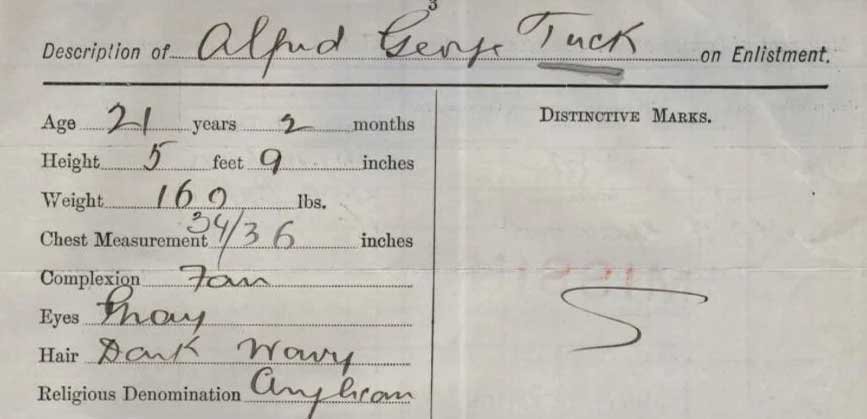 3
Description of Alfred George Tuck on Enlistment.
Age 21 years 2 months
Height 5 feet 9 inches
Weight 160 lbs.
Chest Measurement 34/36 inches
Complexion
Eyes Gray
Hair Dark Wavy
Religious Denomination Anglican
DISTINCTIVE MARKS.